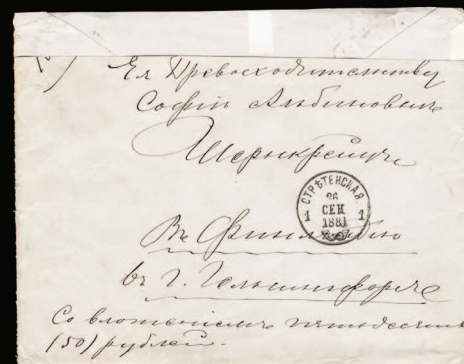 Ея Превосходительству
Софіи Альбиновнѣ
Шернкрейцъ
СТРѢТЕНСКАЯ
26
СЕН
1 1881 1
Въ Финляндію
въ г. Гельсингфорсѣ
Со вложеніемъ пятидесяти
(50) рублей.